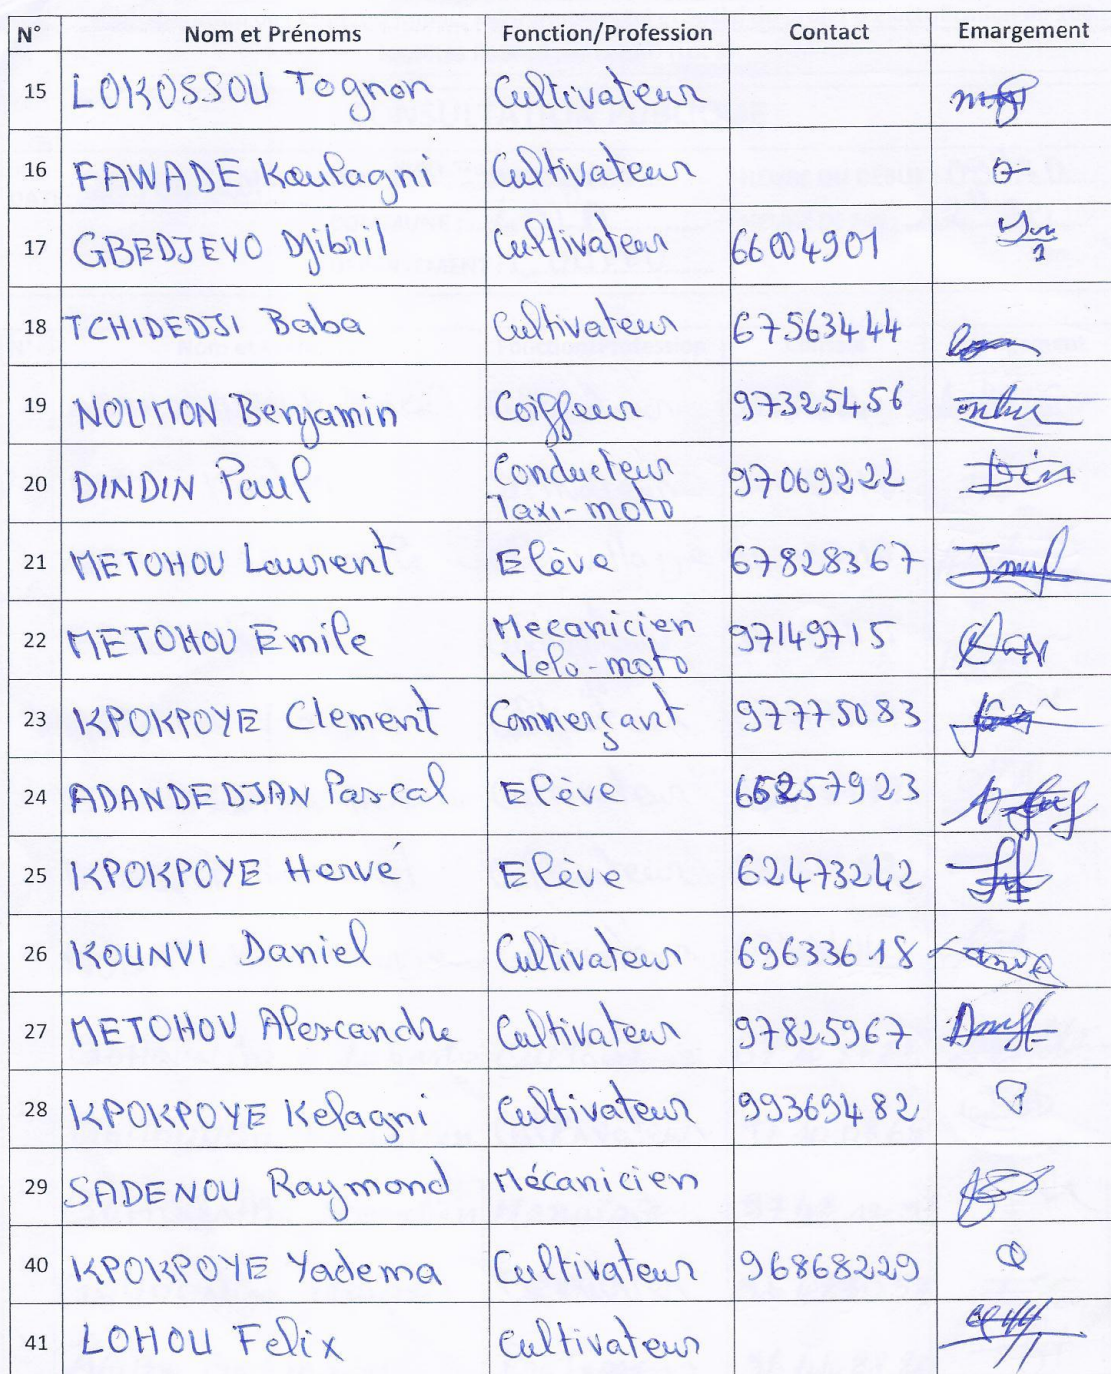 N° Nom et Prénoms Fonction/Profession Contact Emargement
15 LOKOSSOU Tognon Cultivateur
16 FAWADE Koulagni Cultivateur
17 GBEDJEVO Djibril Cultivateur 66004901
18 TCHIDEDJI Baba Cultivateur 67563444
19 NOUMON Benjamin Coiffeur 97325456
20 DINDIN Paul Conducteur Taxi-moto 97069222
21 METOHOU Laurent Elève 67828367
22 METOHOU Emile Mecanicien Velo-moto 97149715
23 KPOKPOYE Clement Commerçant 97775083
24 ADANDEDJAN Pascal Elève
25 KPOKPOYE Hervé Elève 62473242
26 KOUNVI Daniel Cultivateur 69633618
27 METOHOU Alexcandre Cultivateur 97825967
28 KPOKPOYE Kelagni Cultivateur 99369482
29 SADENOU Raymond Mécanicien
40 KPOKPOYE Yadema Cultivateur 96868229
41 LOHOU Felix Cultivateur